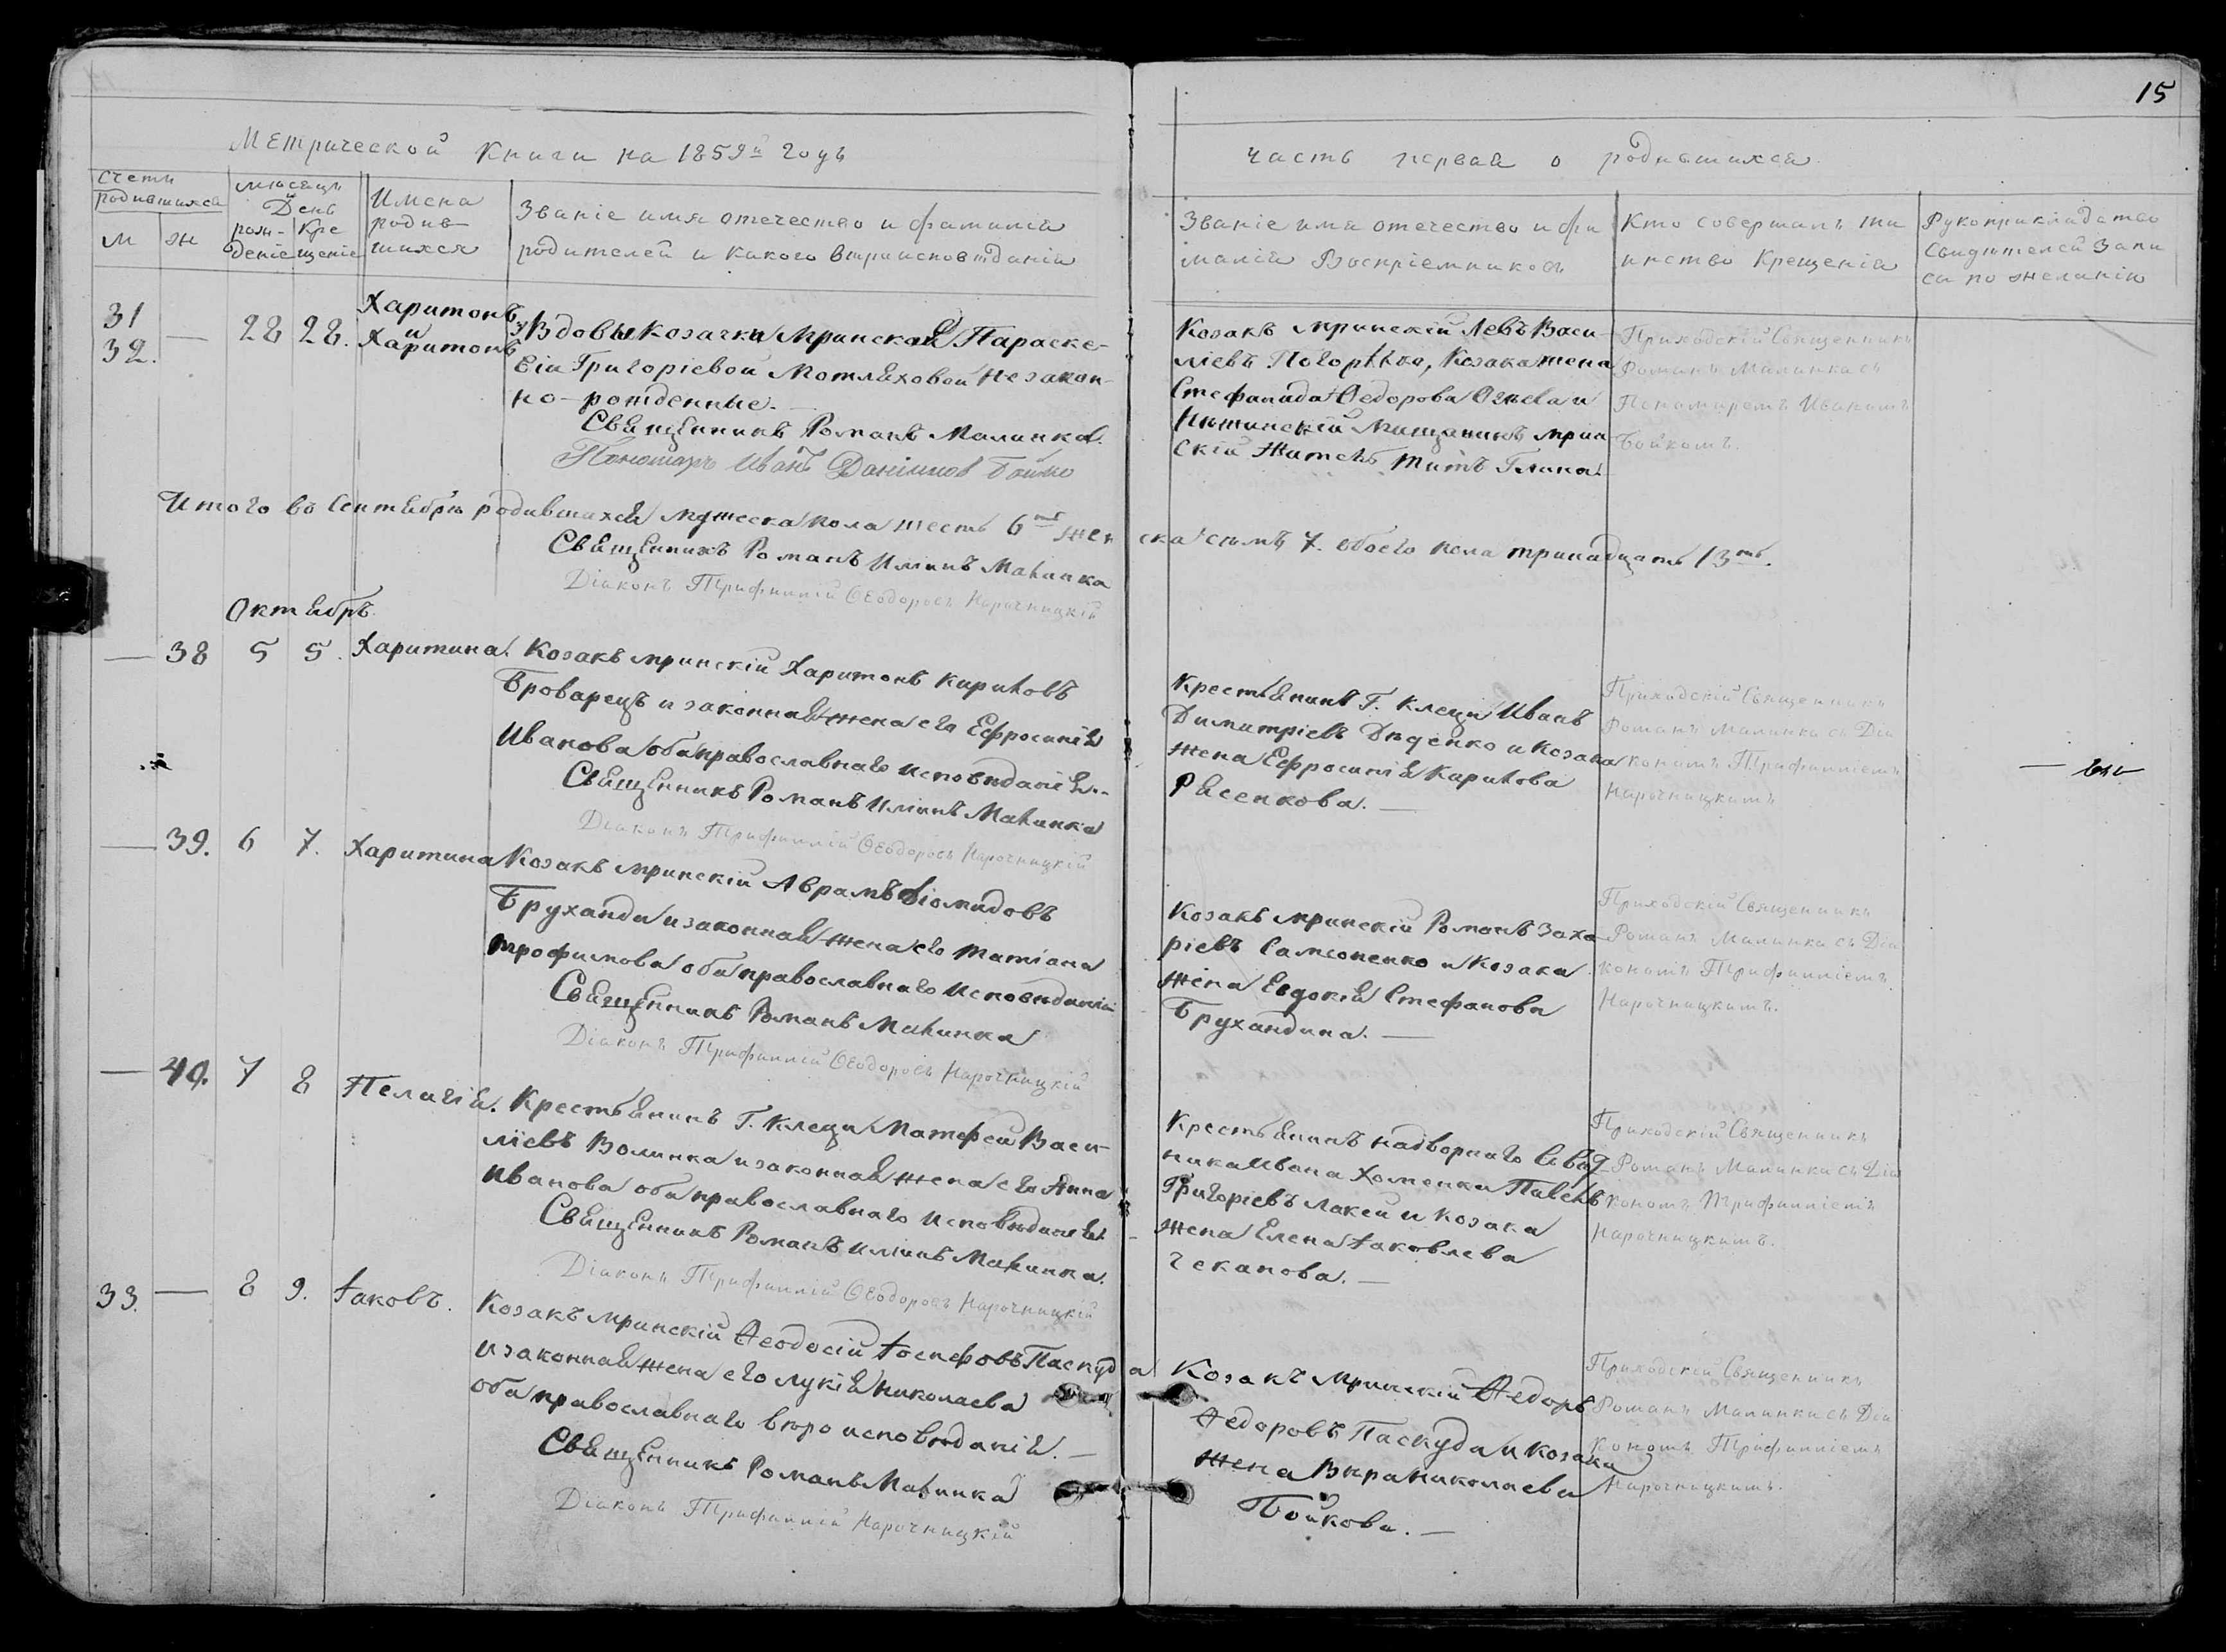 15
Метрической Книги на 1859й годъ
часть первая о родившихся.
счетъ родившихся
м ж
мѣсяцъ и День
рожденіе Крещеніе
Имена родившихся
Званіе имя отечество и фамилія
родителей и какого вѣроисповѣданія
Званіе имя отечество и фа
милія Воспріемниковъ
Кто совершалъ та
инство Крещенія
Рукоприкладство
Свидѣтелей Запи
си по желанію
31
32. — 28 28.
Харитонъ
и
Харитонъ
Вдовы Козачки Мринской Параске-
віи Григоріевой Мотляховой незакон-
но-рожденные.
Священникъ Романъ Малинка.
Пономарь Иванъ Даніиловъ Бойко
Козакъ мринскій Левъ Васи-
ліевъ Погорѣлко, Козака жена
Стефанида Ѳедорова Огнева и
Нѣжинскій Мищанинъ мрин
скій житель Титъ Глина.
Приходскій Священникъ
Романъ Малинка съ
Пономаремъ Иваномъ
Бойкомъ.
Итого въ Сентябрѣ родившихся мужеска пола шесть 6ть женска семь 7. обоего пола тринадцать 13ть.
Священникъ Романъ Иліинъ Малинка
Діаконъ Трифиллій Ѳеодоровъ Нарочницкій
Октябрь
— 38 5 5. Харитина.
Козакъ мринскій Харитонъ Кириловъ
Броварецъ и законная жена его Ефросинія
Иванова оба православнаго исповѣданія.
Священникъ Романъ Иліинъ Малинка
Діаконъ Трифиллій Ѳеодоровъ Нарочницкій
Крестьянинъ Г. Клеци Иванъ
Димитріевъ Дѣденко и Козака
жена Ефросинія Кирилова
Рясенкова. —
Приходскій Священникъ
Романъ Малинка съ Діа
кономъ Трифилліемъ
Нарочницкимъ
— 39. 6 7. Харитина
Козакъ мринскій Аврамъ Діомидовъ
Бруханда и законная жена его Татіана
Трофимова оба православнаго исповѣданія
Священникъ Романъ Малинка
Діаконъ Трифиллій Ѳеодоровъ Нарочницкій
Козакъ мринскій Романъ Заха
ріевъ Самсоненко и Козака
жена Евдокія Стефанова
Брухандина. —
Приходскій Священникъ
Романъ Малинка съ Діа
кономъ Трифилліемъ
Нарочницкимъ.
— 40. 7 8 Пелагія.
Крестьянинъ Г. Клеци Матфей Васи-
ліевъ Волинка и законная жена его Анна
Иванова оба православнаго исповѣданія.
Священникъ Романъ Иліинъ Малинка.
Діаконъ Трифиллій Ѳеодоровъ Нарочницкій
Крестьянинъ надворнаго Совѣт
ника Ивана Хоменки Павелъ
Григоріевъ Лакей и Козака
жена Елена Іаковлева
Чеканова. —
Приходскій Священникъ
Романъ Малинка съ Діа
кономъ Трифилліемъ
Нарочницкимъ.
33. — 8 9. Іаковъ.
Козакъ мринскій Ѳеодосій Іосифовъ Паскуда
и законная жена его Лукія Николаева
оба православнаго вѣроисповѣданія. —
Священникъ Романъ Малинка
Діаконъ Трифиллій Нарочницкій
Козакъ Мринскій Ѳедоръ
Ѳедоровъ Паскуда и Козака
жена Вѣра Николаева
Бойкова. —
Приходскій Священникъ
Романъ Малинка съ Діа
кономъ Трифилліемъ
Нарочницкимъ.